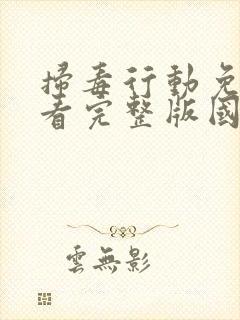 掃毒行動免
看完整版國
雲無影